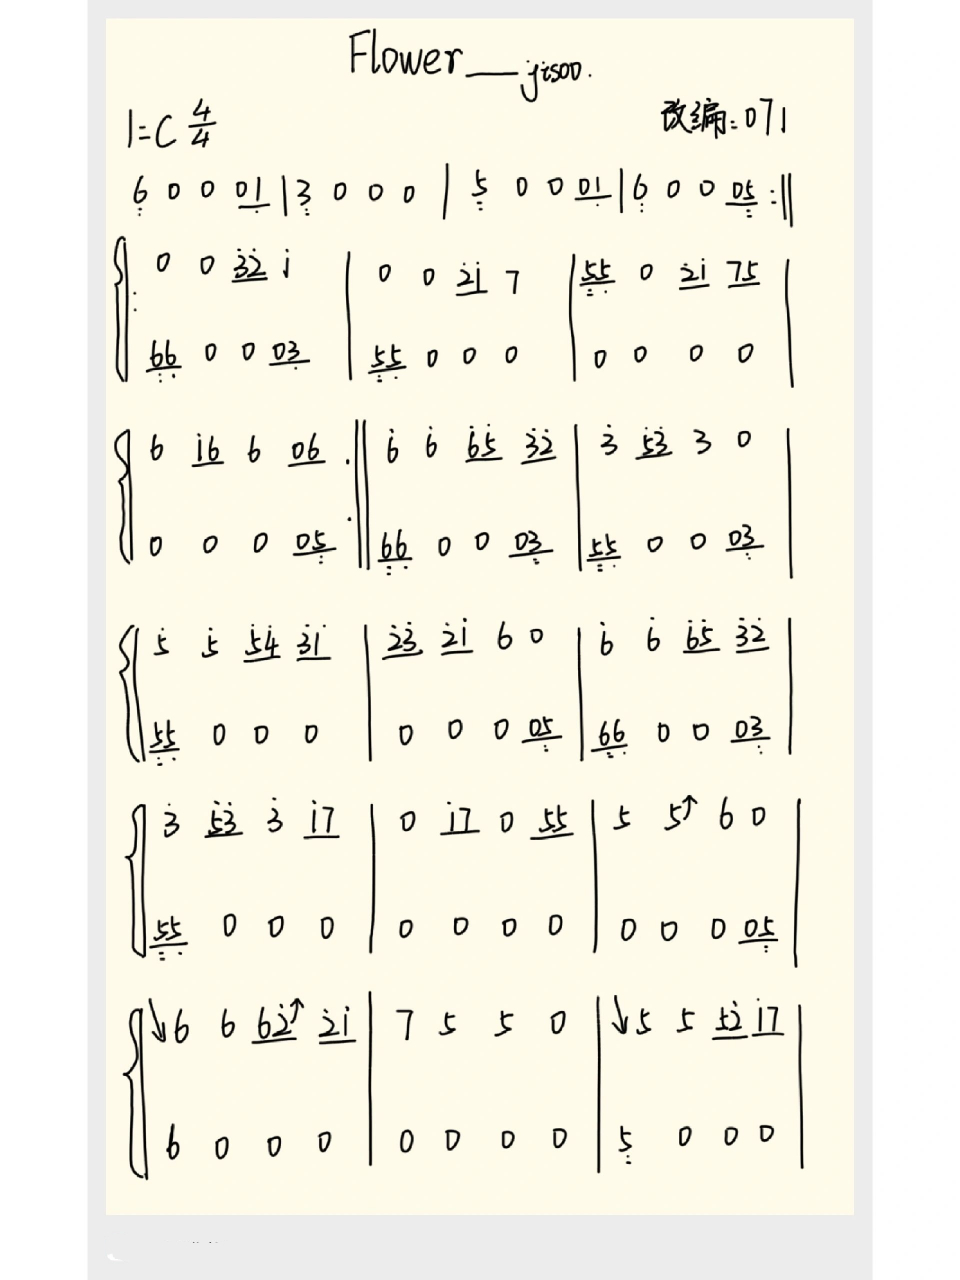 Flower__jisoo.
1=C 4/4 改编:071
6 0 0 01 | 3 0 0 0 | 5 0 0 01 | 6 0 0 05 :||
0 0 32 1 | 0 0 21 7 | 55 0 21 75 |
66 0 0 03 | 55 0 0 0 | 0 0 0 0 |
6 16 6 06 :|| 6 6 65 32 | 3 53 3 0 |
0 0 0 05 :|| 66 0 0 03 | 55 0 0 03 |
5 5 54 31 | 23 21 6 0 | 6 6 65 32 |
55 0 0 0 | 0 0 0 05 | 66 0 0 03 |
3 53 3 17 | 0 17 0 55 | 5 5↑ 6 0 |
55 0 0 0 | 0 0 0 0 | 0 0 0 05 |
↓6 6 62↑ 21 | 7 5 5 0 | ↓5 5 52 17 |
6 0 0 0 | 0 0 0 0 | 5 0 0 0 |